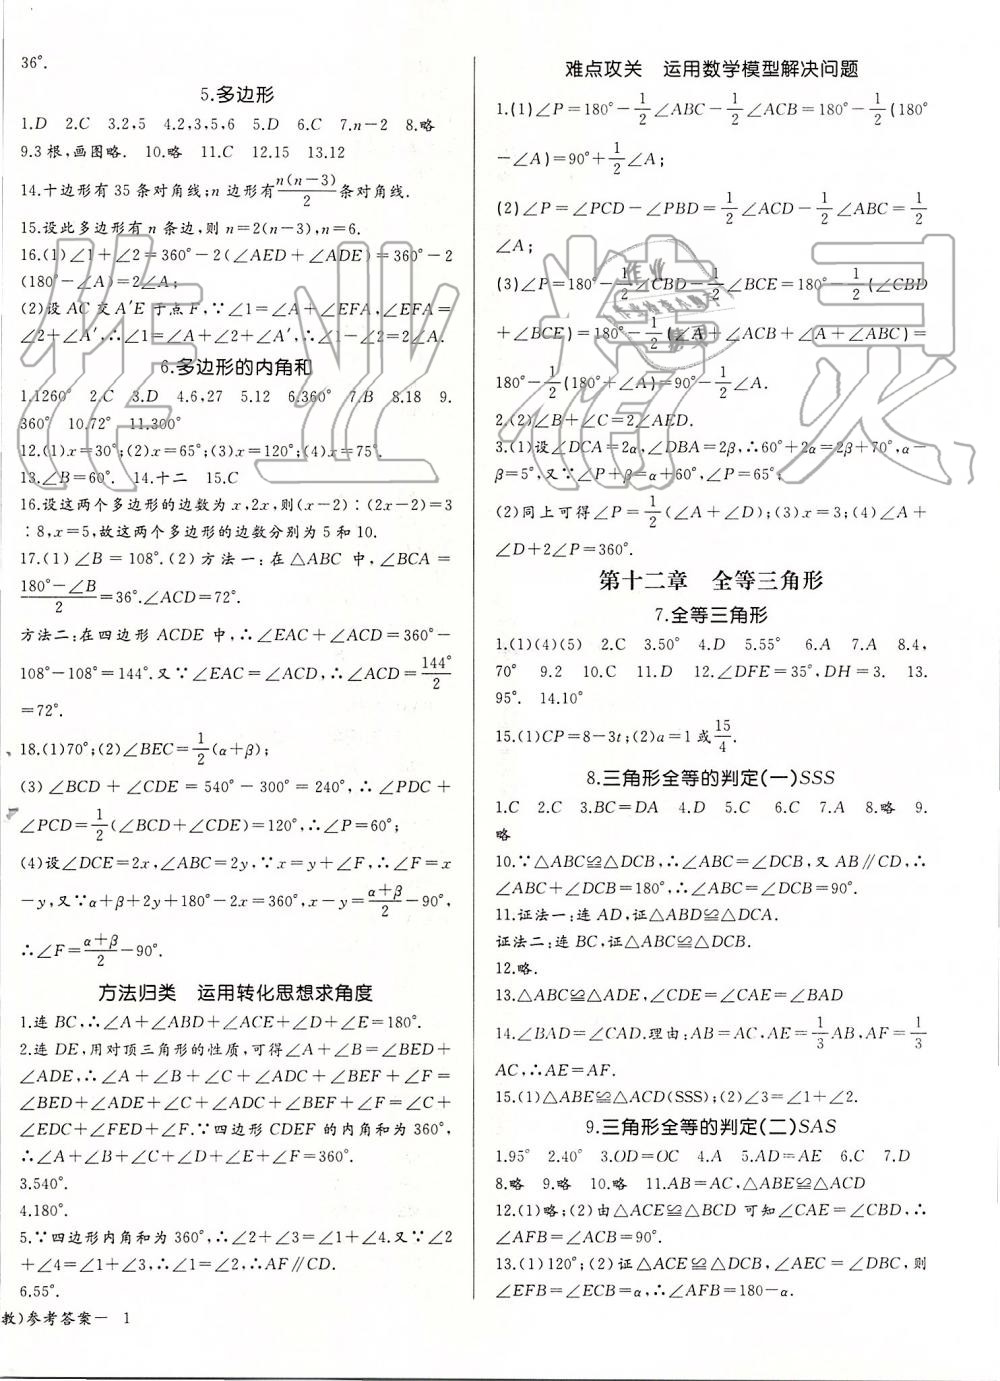 36°.
5.多边形
1.D 2.C 3.2,5 4.2,3,5,6 5.D 6.C 7.n-2 8.略
9.3根,画图略. 10.略 11.C 12.15 13.12
14.十边形有35条对角线;n边形有n(n-3)/2条对角线.
15.设此多边形有n条边,则n=2(n-3),n=6.
16.(1)∠1+∠2=360°-2(∠AED+∠ADE)=360°-2
(180°-∠A)=2∠A;
(2)设AC交A′E于点F,∵∠1=∠A+∠EFA,∠EFA=
∠2+∠A′,∴∠1=∠A+∠2+∠A′,∴∠1=∠2+2∠A.
6.多边形的内角和
1.1260° 2.C 3.D 4.6,27 5.12 6.360° 7.B 8.18 9.
360° 10.72° 11.300°
12.(1)x=30°;(2)x=65°;(3)x=120°;(4)x=75°.
13.∠B=60°. 14.十二 15.C
16.设这两个多边形的边数为x,2x,则(x-2)∶(2x-2)=3
∶8,x=5,故这两个多边形的边数分别为5和10.
17.(1)∠B=108°.(2)方法一:在△ABC中,∠BCA=
(180°-∠B)/2=36°.∠ACD=72°.
方法二:在四边形ACDE中,∴∠EAC+∠ACD=360°-
108°-108°=144°.又∵∠EAC=∠ACD,∴∠ACD=144°/2
=72°.
18.(1)70°;(2)∠BEC=1/2(α+β);
(3)∠BCD+∠CDE=540°-300°=240°,∴∠PDC+
∠PCD=1/2(∠BCD+∠CDE)=120°,∴∠P=60°;
(4)设∠DCE=2x,∠ABC=2y,∵x=y+∠F,∴∠F=x
-y,又∵α+β+2y+180°-2x=360°,x-y=(α+β)/2-90°,
∴∠F=(α+β)/2-90°.
方法归类 运用转化思想求角度
1.连BC,∴∠A+∠ABD+∠ACE+∠D+∠E=180°.
2.连DE,用对顶三角形的性质,可得∠A+∠B=∠BED+
∠ADE,∴∠A+∠B+∠C+∠ADC+∠BEF+∠F=
∠BED+∠ADE+∠C+∠ADC+∠BEF+∠F=∠C+
∠EDC+∠FED+∠F.∵四边形CDEF的内角和为360°,
∴∠A+∠B+∠C+∠ADC+∠BEF+∠F=360°.
3.540°.
4.180°.
5.∵四边形内角和为360°,∴∠2+∠3=∠1+∠4.又∵∠2
+∠4=∠1+∠3,∴∠1=∠2,∴AF∥CD.
6.55°.
教)参考答案— 1
难点攻关 运用数学模型解决问题
1.(1)∠P=180°-1/2∠ABC-1/2∠ACB=180°-1/2(180°
-∠A)=90°+1/2∠A;
(2)∠P=∠PCD-∠PBD=1/2∠ACD-1/2∠ABC=1/2
∠A;
(3)∠P=180°-1/2∠CBD-1/2∠BCE=180°-1/2(∠CBD
+∠BCE)=180°-1/2(∠A+∠ACB+∠A+∠ABC)=
180°-1/2(180°+∠A)=90°-1/2∠A.
2.(2)∠B+∠C=2∠AED.
3.(1)设∠DCA=2α,∠DBA=2β,∴60°+2α=2β+70°,α-
β=5°,又∵∠P+β=α+60°,∠P=65°;
(2)同上可得∠P=1/2(∠A+∠D);(3)x=3;(4)∠A+
∠D+2∠P=360°.
第十二章 全等三角形
7.全等三角形
1.(1)(4)(5) 2.C 3.50° 4.D 5.55° 6.A 7.A 8.4,
70° 9.2 10.C 11.D 12.∠DFE=35°,DH=3. 13.
95°. 14.10°
15.(1)CP=8-3t;(2)a=1或15/4.
8.三角形全等的判定(一)SSS
1.C 2.C 3.BC=DA 4.D 5.C 6.C 7.A 8.略 9.
略
10.∵△ABC≌△DCB,∴∠ABC=∠DCB,又AB∥CD,∴
∠ABC+∠DCB=180°,∴∠ABC=∠DCB=90°.
11.证法一:连AD,证△ABD≌△DCA.
证法二:连BC,证△ABC≌△DCB.
12.略.
13.△ABC≌△ADE,∠CDE=∠CAE=∠BAD
14.∠BAD=∠CAD.理由:AB=AC,AE=1/3AB,AF=1/3
AC,∴AE=AF.
15.(1)△ABE≌△ACD(SSS);(2)∠3=∠1+∠2.
9.三角形全等的判定(二)SAS
1.95° 2.40° 3.OD=OC 4.A 5.AD=AE 6.C 7.D
8.略 9.略 10.略 11.AB=AC,△ABE≌△ACD
12.(1)略;(2)由△ACE≌△BCD可知∠CAE=∠CBD,∴
∠AFB=∠ACB=90°.
13.(1)120°;(2)证△ACE≌△DCB,∠AEC=∠DBC,则
∠EFB=∠ECB=α,∴∠AFB=180-α.
作业精灵